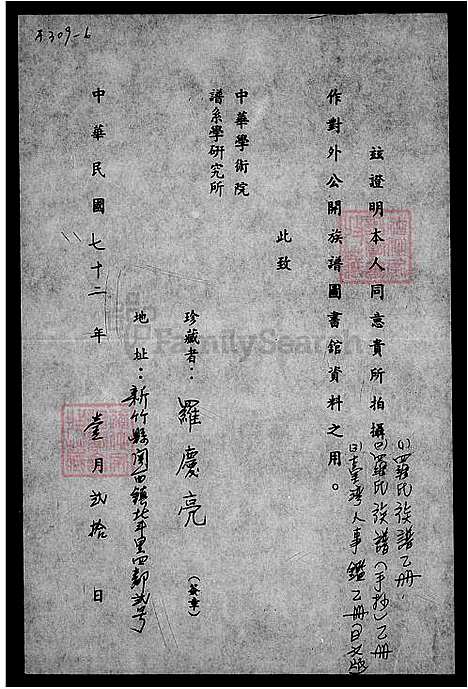 A309-6
茲證明本人同意貴所拍攝
(1)羅氏族譜乙冊.
(2)羅氏族譜(手抄)乙冊
(3)臺灣人事鑑乙冊日文版
作對外公開族譜圖書館資料之用。
此致
中華學術院
譜系學研究所
珍藏者：羅慶亮(簽章)
地址：新竹縣關西鎮北斗里四鄰貳号
中華民國七十二年壹月貳拾日
FamilySearch